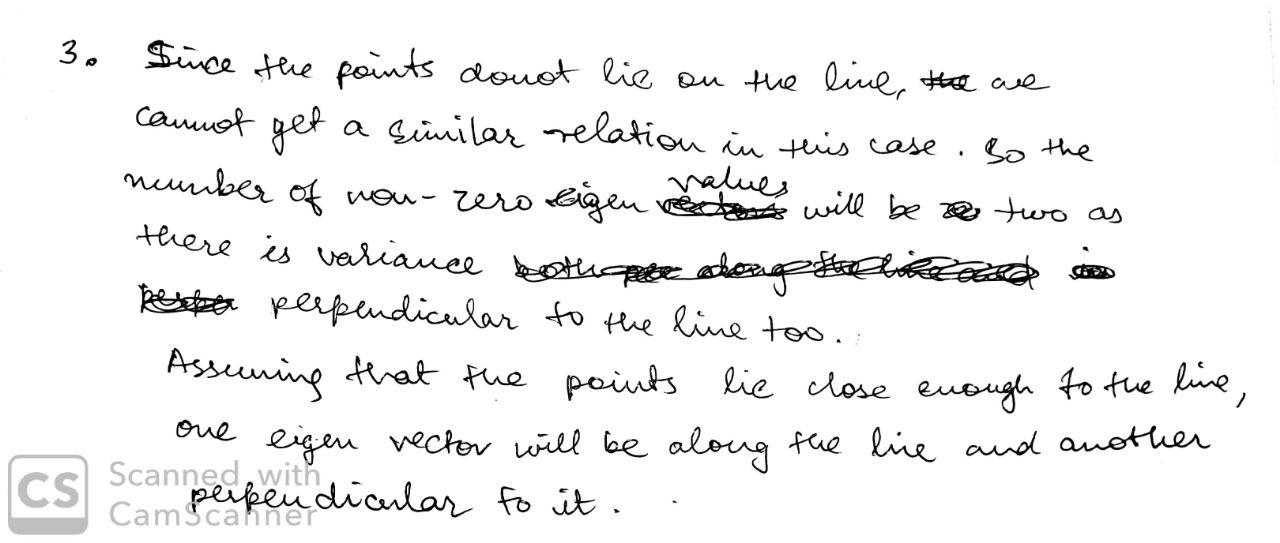 3. Since the points donot lie on the line, we
cannot get a similar relation in this case. So the
number of non-zero eigen values will be two as
there is variance
perpendicular to the line too.
Assuming that the points lie close enough to the line,
one eigen vector will be along the line and another
perpendicular to it.
CS Scanned with
CamScanner